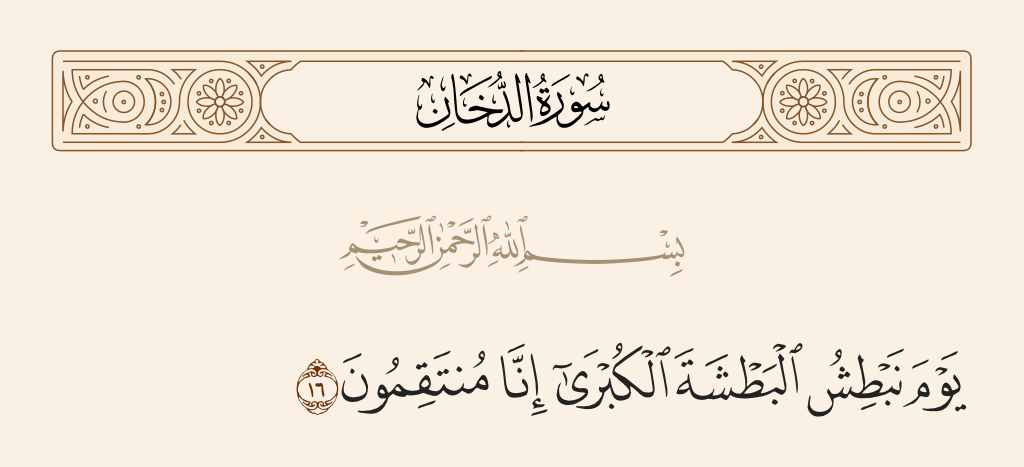 سُورَةُ الدُّخَانِ
بِسْمِ ٱللَّهِ ٱلرَّحْمَٰنِ ٱلرَّحِيمِ
يَوْمَ نَبْطِشُ ٱلْبَطْشَةَ ٱلْكُبْرَىٰٓ إِنَّا مُنتَقِمُونَ ١٦